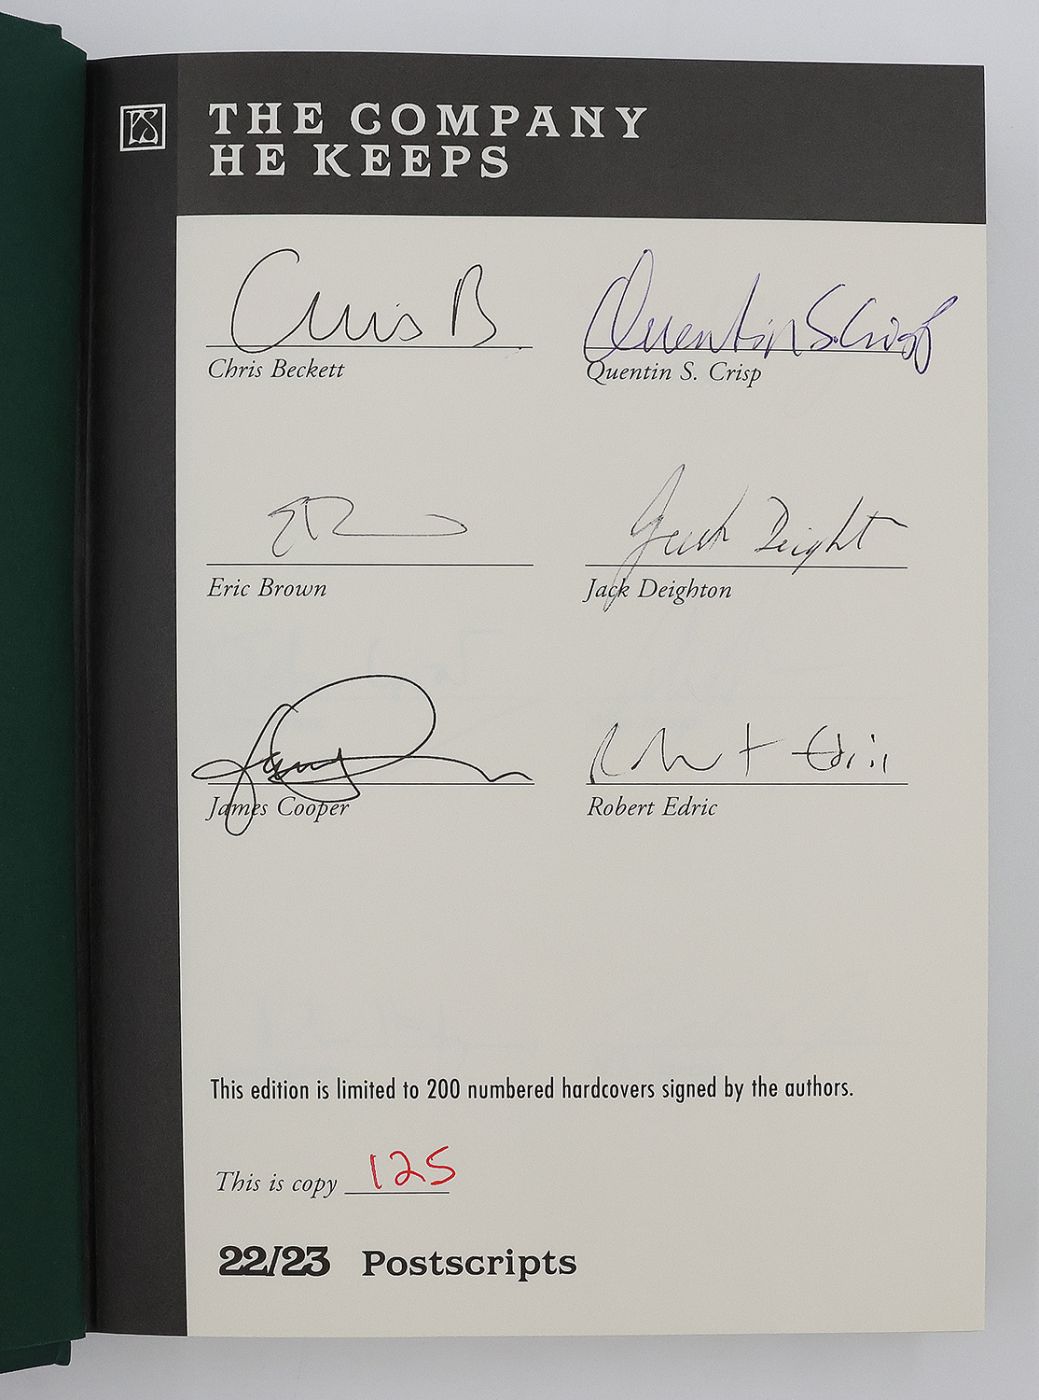 PS
THE COMPANY
HE KEEPS
Chris B
Quentin S. Crisp
Chris Beckett
Quentin S. Crisp
Jack Deight
Eric Brown
Jack Deighton
James
Robert Edric
James Cooper
Robert Edric
This edition is limited to 200 numbered hardcovers signed by the authors.
This is copy 125
22/23 Postscripts